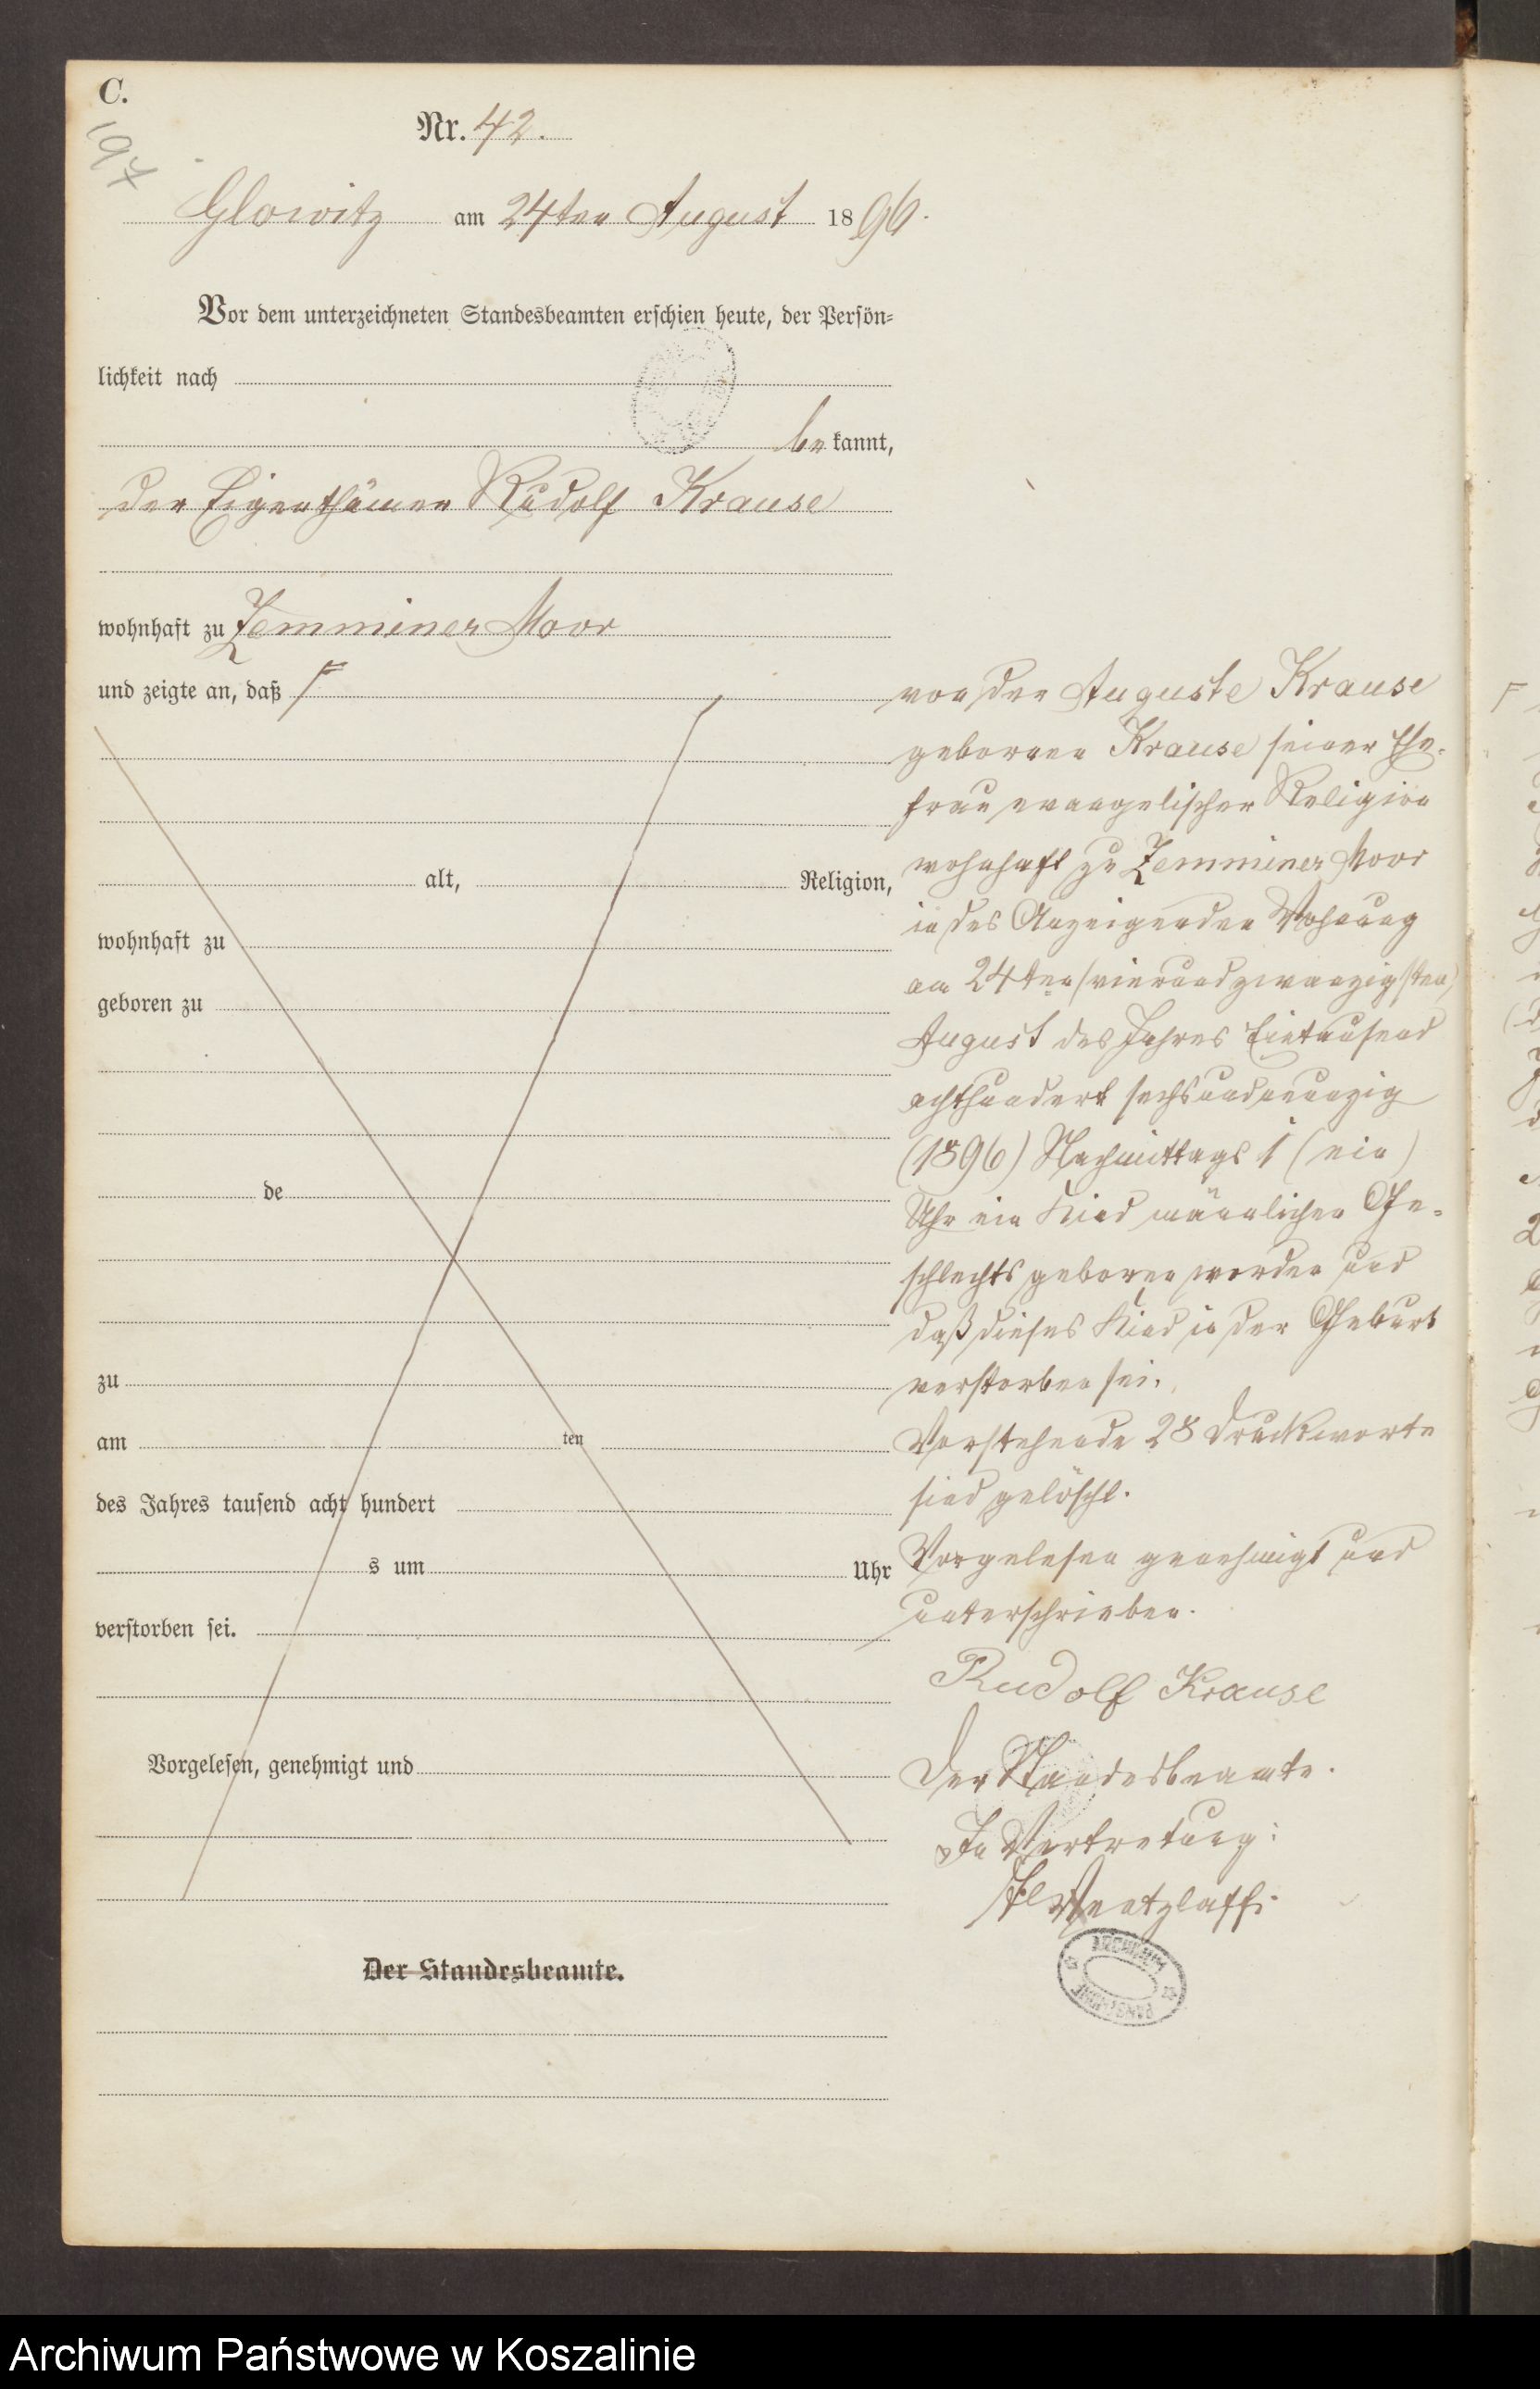 C.
197
Nr. 42.
Glowitz am 24ten August 1896.
Vor dem unterzeichneten Standesbeamten erschien heute, der Persön-
lichkeit nach
be kannt,
der Eigenthümer Rudolf Krause
wohnhaft zu Zemminer Moor
und zeigte an, daß F
alt, Religion,
wohnhaft zu
geboren zu
de
zu
am ten
des Jahres tausend acht hundert
s um Uhr
verstorben sei.
Vorgelesen, genehmigt und
Der Standesbeamte.
von der Auguste Krause
geborenen Krause seiner Ehe-
frau evangelischer Religion
wohnhaft zu Zemminer Moor
in des Anzeigenden Wohnung
am 24ten (vierundzwanzigsten)
August des Jahres Eintausend
achthundert sechsundneunzig
(1896) Nachmittags 1 (ein)
Uhr ein Kind männlichen Ge-
schlechts geboren worden und
daß dieses Kind in der Geburt
verstorben sei.
Vorstehende 28 Druckworte
sind gelöscht.
Vorgelesen genehmigt und
unterschrieben.
Rudolf Krause
Der Standesbeamte.
In Vertretung:
Wentzlaff.
ARCHIWUM
PAŃSTWOWE
Archiwum Państwowe w Koszalinie